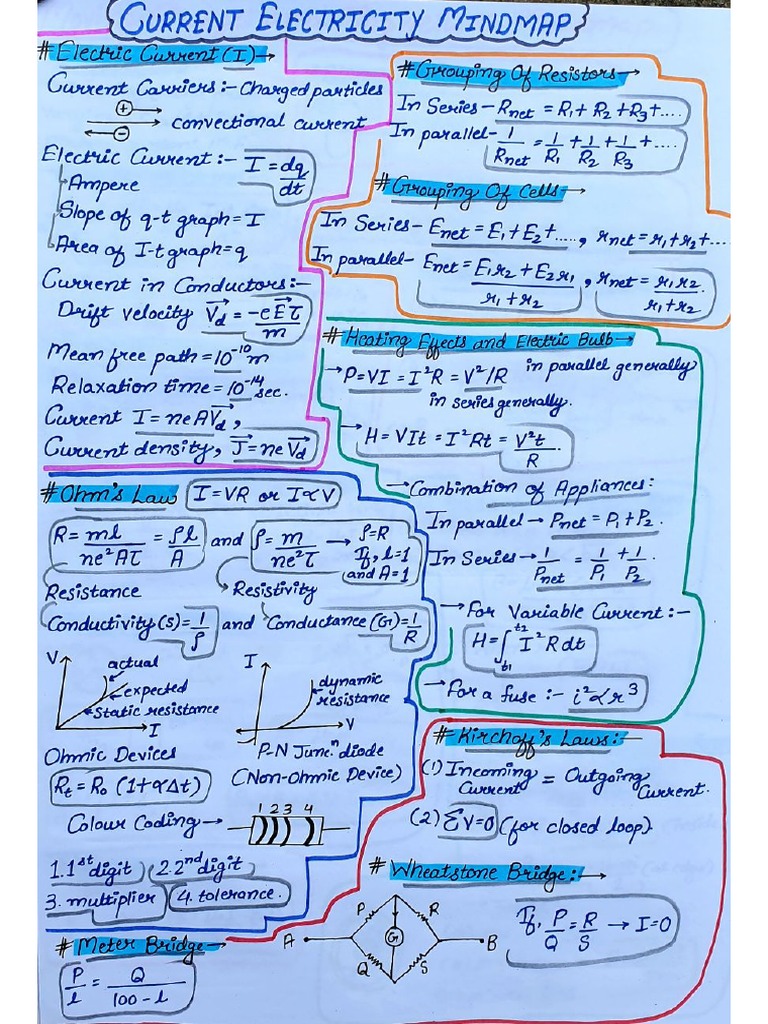 CURRENT ELECTRICITY MINDMAP
# Electric Current (I) →
Current Carriers:- Charged particles
(+) →
← (-) convectional current
Electric Current:- I = dq/dt
Ampere
Slope of q-t graph = I
Area of I-t graph = q
Current in Conductors:-
Drift velocity V⃗d = -eE⃗τ/m
Mean free path = 10⁻¹⁰m
Relaxation time = 10⁻¹⁴ sec.
Current I = neAV⃗d,
Current density, J⃗ = neV⃗d
# Grouping Of Resistors →
In Series - Rnet = R1 + R2 + R3 + ....
In parallel - 1/Rnet = 1/R1 + 1/R2 + 1/R3 + ....
# Grouping Of Cells →
In Series - Enet = E1 + E2 + ....., rnet = r1 + r2 + ....
In parallel - Enet = E1r2 + E2r1/r1 + r2, rnet = r1r2/r1 + r2.
# Heating Effects and Electric Bulb →
→ P = VI = I²R = V²/R in parallel generally
in series generally.
→ H = VIt = I²Rt = V²t/R
→ Combination of Appliances:
In parallel → Pnet = P1 + P2.
In Series → 1/Pnet = 1/P1 + 1/P2.
→ For Variable Current:-
H = ∫t1t2 I²Rdt
→ For a fuse :- i² ∝ r³
# Ohm's Law I = VR or I ∝ V
R = ml/ne²Aτ = ρl/A and ρ = m/ne²τ → ρ = R
If, l = 1
and A = 1
Resistance Resistivity
Conductivity (S) = 1/ρ and Conductance (G) = 1/R
V actual
expected
Static resistance
I
I dynamic
resistance
V
P-N Junc.ⁿ diode
Ohmic Devices (Non-Ohmic Device)
Rt = R0 (1 + αΔt)
Colour Coding → 1 2 3 4
1. 1st digit 2. 2nd digit
3. multiplier 4. tolerance.
# Kirchoff's Laws:- →
(1) Incoming Current = Outgoing Current.
(2) ΣV = 0 (for closed loop)
# Wheatstone Bridge:- →
P R
A G B
Q S
If, P/Q = R/S → I = 0
# Meter Bridge →
P/l = Q/100 - l